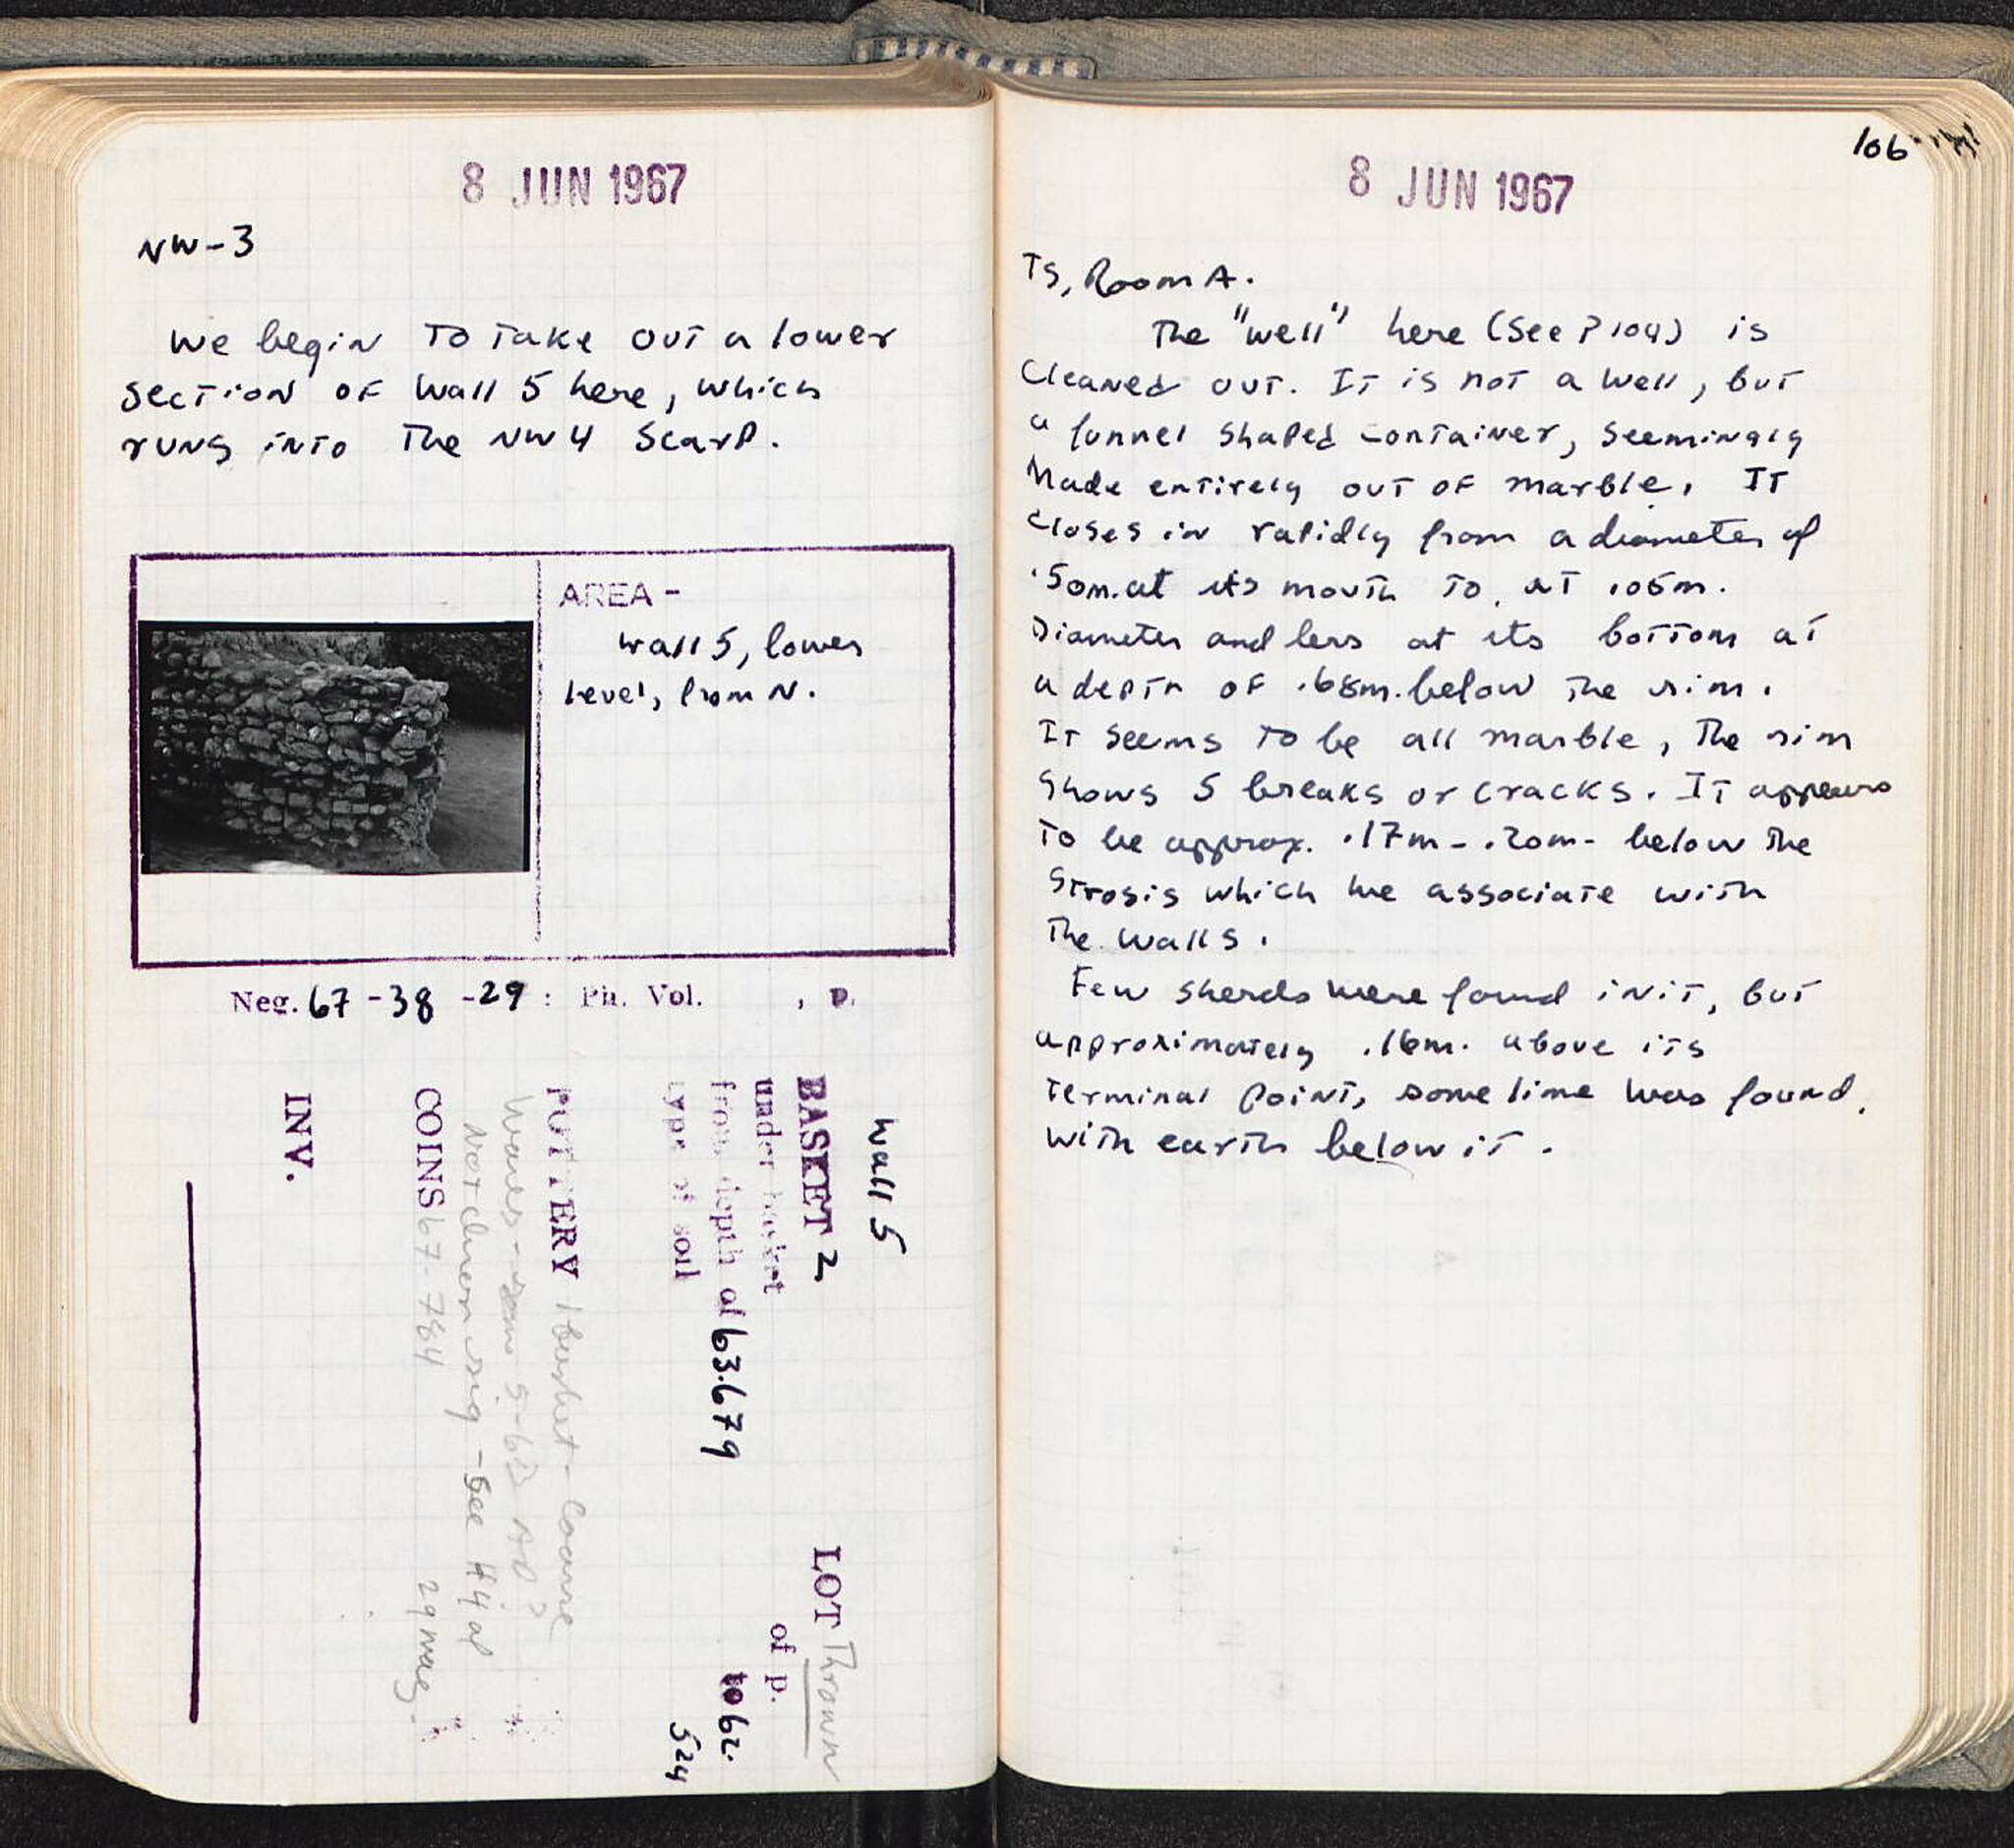 8 JUN 1967
NW-3
We begin to take out a lower
section of Wall 5 here, which
runs into the NW4 Scarp.
AREA -
Wall 5, lower
level, from N.
Neg. 67 -38 -29 : Ph. Vol. , p.
Wall 5
BASKET 2 LOT Thrown
under basket of p.
from depth of 63.679 to 62.
524
type of soil
POTTERY 1 basket - Coarse
Wares - some 5-6 AD?
Not chron sig - See #4 of
29 may.
COINS 67-784
INV.
106
8 JUN 1967
T5, Room A.
The "well" here (See P 104) is
cleaned out. It is not a well, but
a funnel shaped container, seemingly
made entirely out of marble. It
closes in rapidly from a diameter of
.50m. at its mouth to, at .05m.
diameter and less at its bottom at
a depth of .68m. below the rim.
It seems to be all marble, the rim
shows 5 breaks or cracks. It appears
to be approx. .17m - .20m - below the
strosis which we associate with
the walls.
Few sherds were found in it, but
approximately .16m. above its
terminal point, some lime was found,
with earth below it.